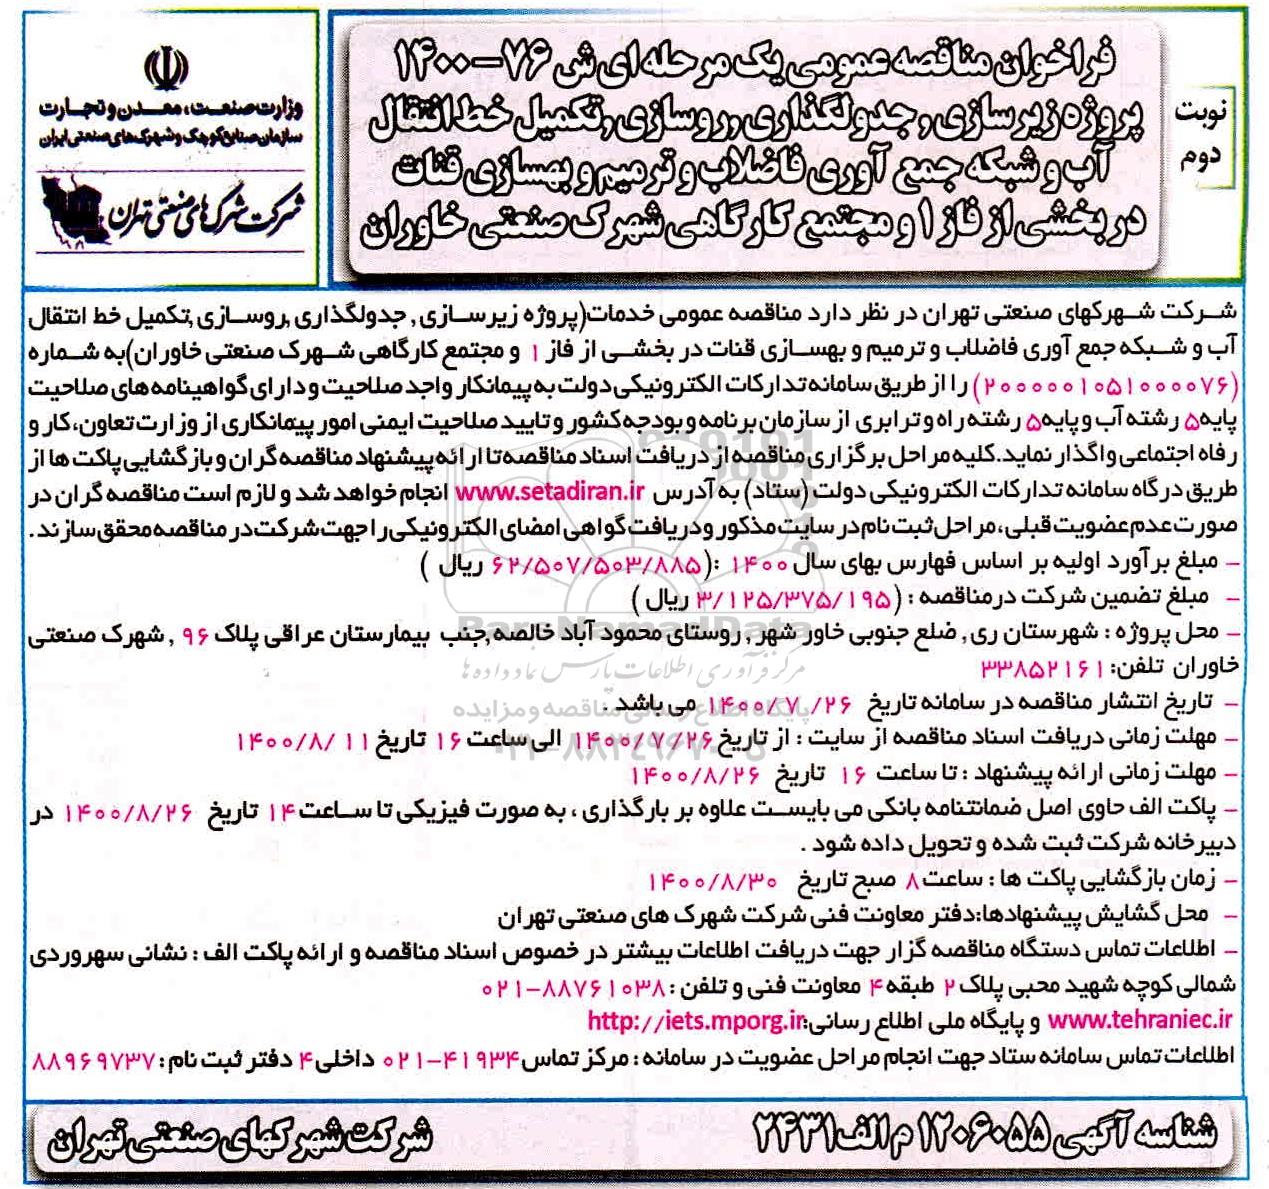 وزارت صنعت، معدن و تجارت
سازمان صنایع کوچک و شهرکهای صنعتی ایران
شرکت شهرک های صنعتی تهران
نوبت
دوم
فراخوان مناقصه عمومی یک مرحله ای ش ۷۶-۱۴۰۰
پروژه زیرسازی , جدولگذاری , روسازی , تکمیل خط انتقال
آب و شبکه جمع آوری فاضلاب و ترمیم و بهسازی قنات
در بخشی از فاز ۱ و مجتمع کارگاهی شهرک صنعتی خاوران
شرکت شهرکهای صنعتی تهران در نظر دارد مناقصه عمومی خدمات(پروژه زیرسازی , جدولگذاری ,روسازی ,تکمیل خط انتقال
آب و شبکه جمع آوری فاضلاب و ترمیم و بهسازی قنات در بخشی از فاز ۱ و مجتمع کارگاهی شهرک صنعتی خاوران)به شماره
(۲۰۰۰۰۰۱۰۵۱۰۰۰۰۷۶) را از طریق سامانه تدارکات الکترونیکی دولت به پیمانکار واجد صلاحیت و دارای گواهینامه های صلاحیت
پایه۵ رشته آب و پایه۵ رشته راه و ترابری از سازمان برنامه و بودجه کشور و تایید صلاحیت ایمنی امور پیمانکاری از وزارت تعاون، کار و
رفاه اجتماعی واگذار نماید.کلیه مراحل برگزاری مناقصه از دریافت اسناد مناقصه تا ارائه پیشنهاد مناقصه گران و بازگشایی پاکت ها از
طریق درگاه سامانه تدارکات الکترونیکی دولت (ستاد) به آدرس www.setadiran.ir انجام خواهد شد و لازم است مناقصه گران در
صورت عدم عضویت قبلی، مراحل ثبت نام در سایت مذکور و دریافت گواهی امضای الکترونیکی را جهت شرکت در مناقصه محقق سازند.
- مبلغ برآورد اولیه بر اساس فهارس بهای سال ۱۴۰۰ :(۶۲/۵۰۷/۵۰۳/۸۸۵ ریال )
- مبلغ تضمین شرکت درمناقصه : (۳/۱۲۵/۳۷۵/۱۹۵ ریال )
- محل پروژه : شهرستان ری, ضلع جنوبی خاور شهر , روستای محمود آباد خالصه ,جنب بیمارستان عراقی پلاک ۹۶ , شهرک صنعتی
خاوران تلفن: ۳۳۸۵۲۱۶۱
- تاریخ انتشار مناقصه در سامانه تاریخ ۱۴۰۰/۷/۲۶ می باشد .
- مهلت زمانی دریافت اسناد مناقصه از سایت : از تاریخ ۱۴۰۰/۷/۲۶ الی ساعت ۱۶ تاریخ ۱۴۰۰/۸/۱۱
- مهلت زمانی ارائه پیشنهاد : تا ساعت ۱۶ تاریخ ۱۴۰۰/۸/۲۶
- پاکت الف حاوی اصل ضمانتنامه بانکی می بایست علاوه بر بارگذاری ، به صورت فیزیکی تا ساعت ۱۴ تاریخ ۱۴۰۰/۸/۲۶ در
دبیرخانه شرکت ثبت شده و تحویل داده شود .
- زمان بازگشایی پاکت ها : ساعت ۸ صبح تاریخ ۱۴۰۰/۸/۳۰
- محل گشایش پیشنهادها:دفتر معاونت فنی شرکت شهرک های صنعتی تهران
- اطلاعات تماس دستگاه مناقصه گزار جهت دریافت اطلاعات بیشتر در خصوص اسناد مناقصه و ارائه پاکت الف : نشانی سهروردی
شمالی کوچه شهید محبی پلاک ۲ طبقه ۴ معاونت فنی و تلفن : ۰۲۱-۸۸۷۶۱۰۳۸
www.tehraniec.ir و پایگاه ملی اطلاع رسانی:http://iets.mporg.ir
اطلاعات تماس سامانه ستاد جهت انجام مراحل عضویت در سامانه : مرکز تماس ۰۲۱-۴۱۹۳۴ داخلی ۴ دفتر ثبت نام : ۸۸۹۶۹۷۳۷
شناسه آگهی ۱۲۰۶۰۵۵ م الف ۲۴۳۱
شرکت شهرکهای صنعتی تهران
ParsNamadData
مرکز فرآوری اطلاعات پارس نماد داده ها
پایگاه اطلاع رسانی مناقصه و مزایده